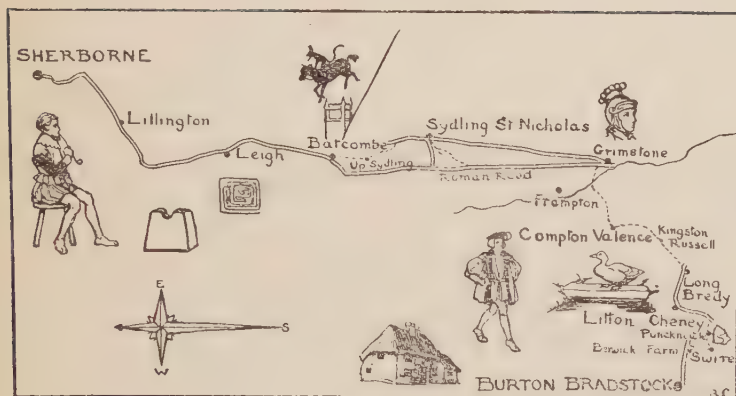 SHERBORNE
Lillington
Leigh
Batcombe
Up Sydling
Sydling St Nicholas
Roman Road
Grimstone
Frampton
Compton Valence
Kingston
Russell
Long
Bredy
Litton Cheney
Puncknowle
Berwick Farm
SWIRE
BURTON BRADSTOCK
E
S
W